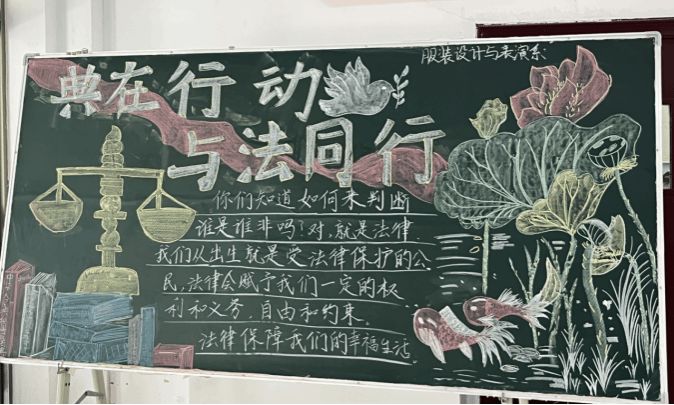 服装设计与表演系
典在行动
与法同行
你们知道如何来判断
谁是谁非吗？对，就是法律.
我们从出生就是受法律保护的公
民，法律会赋予我们一定的权
利和义务，自由和约束。
法律保障我们的幸福生活.